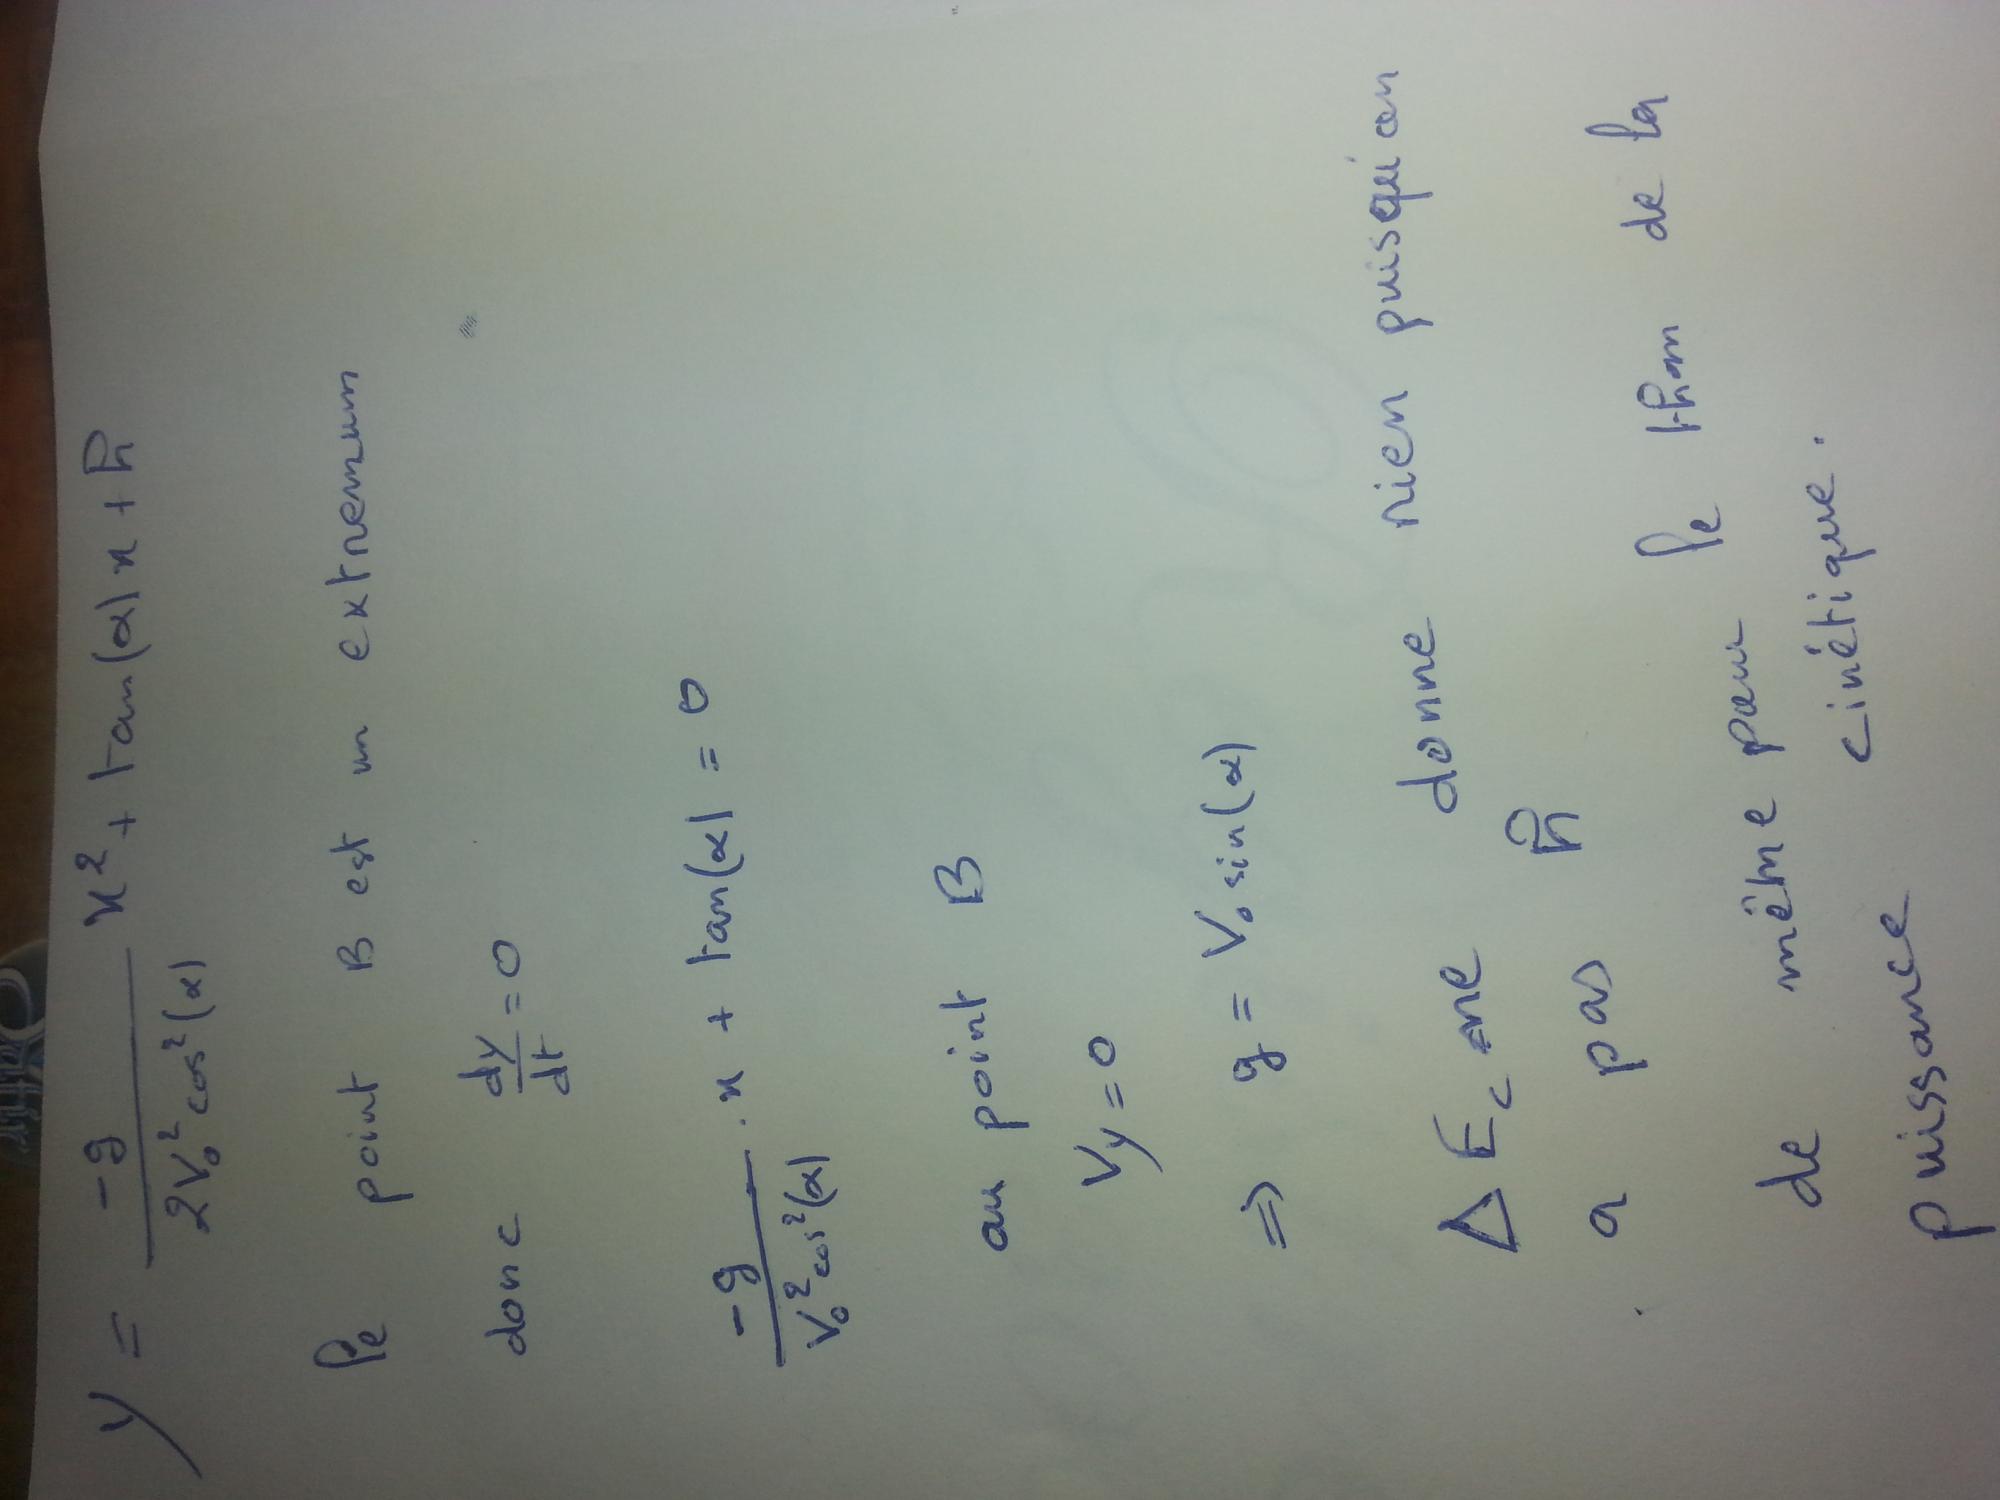 y = -g / 2V₀² cos²(α) x² + tan(α) x + h
le point B est un extremum
donc dy/dt = 0
-g / V₀² cos²(α) . x + tan(α) = 0
au point B
Vy = 0
⇒ g = V₀ sin(α)
ΔEc ne donne rien puisqu'on
a pas h
de même pour le thm de la
puissance cinétique.